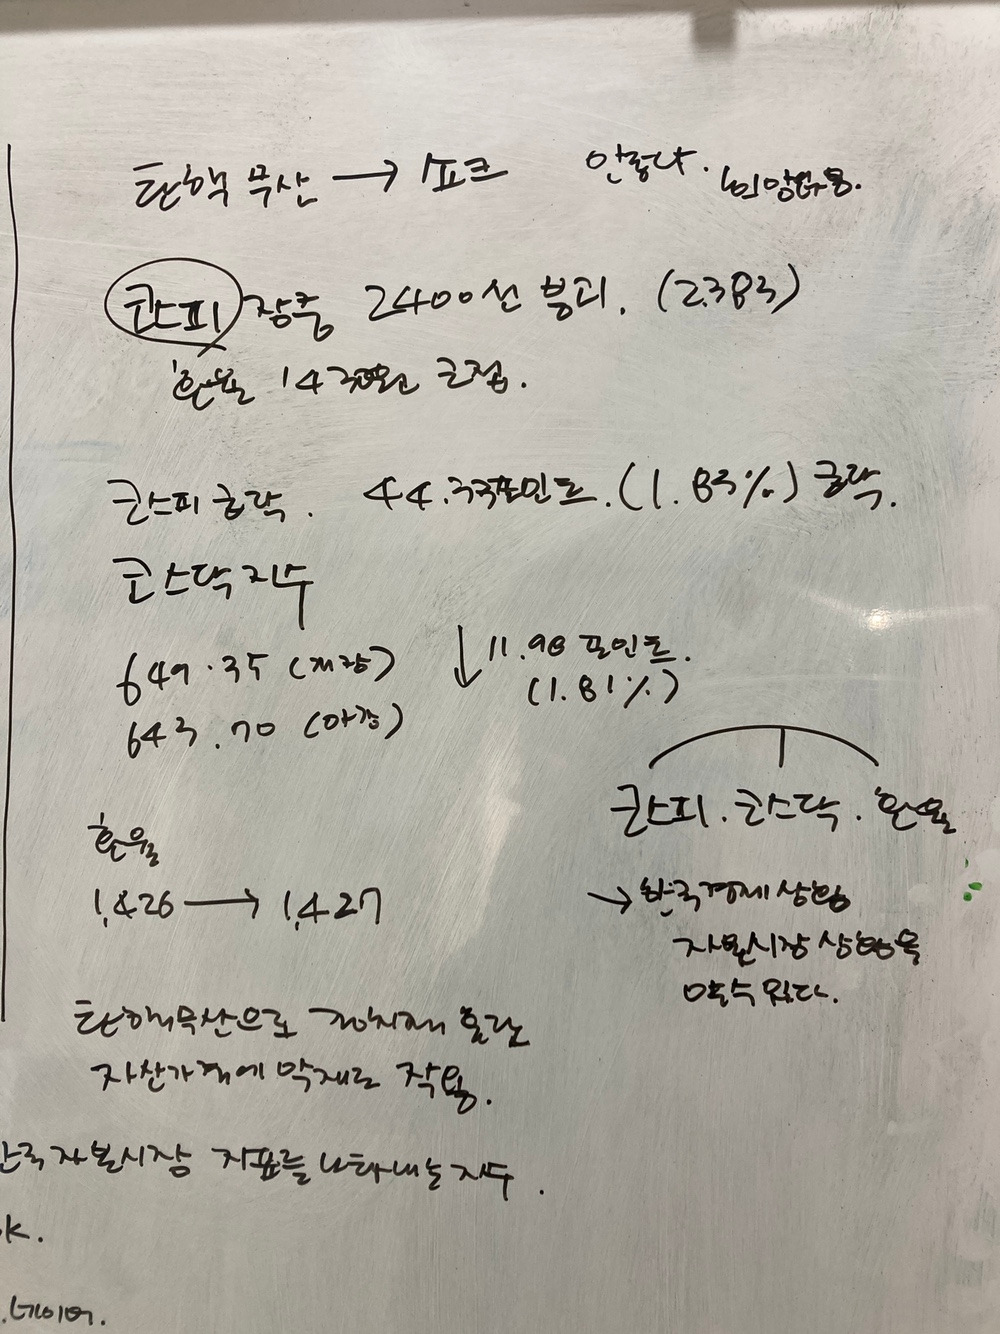 탄핵 무산 → 쇼크
코스피 장중 2400선 붕괴. (2383)
환율 1430원 근접.
코스피 급락. 44.33포인트. (1.83%) 급락.
코스닥 지수
649.35 (개장)
643.70 (마감)
↓ 11.98 포인트.
(1.81%)
환율
1,426 → 1,427
코스피. 코스닥. 환율
→ 한국경제 상황
자본시장 상황을
알수 있다.
탄핵무산으로 정치재 혼란
자산가격에 악재로 작용.
한국자본시장 지표를 나타내는 지수.
k.
.네이버.